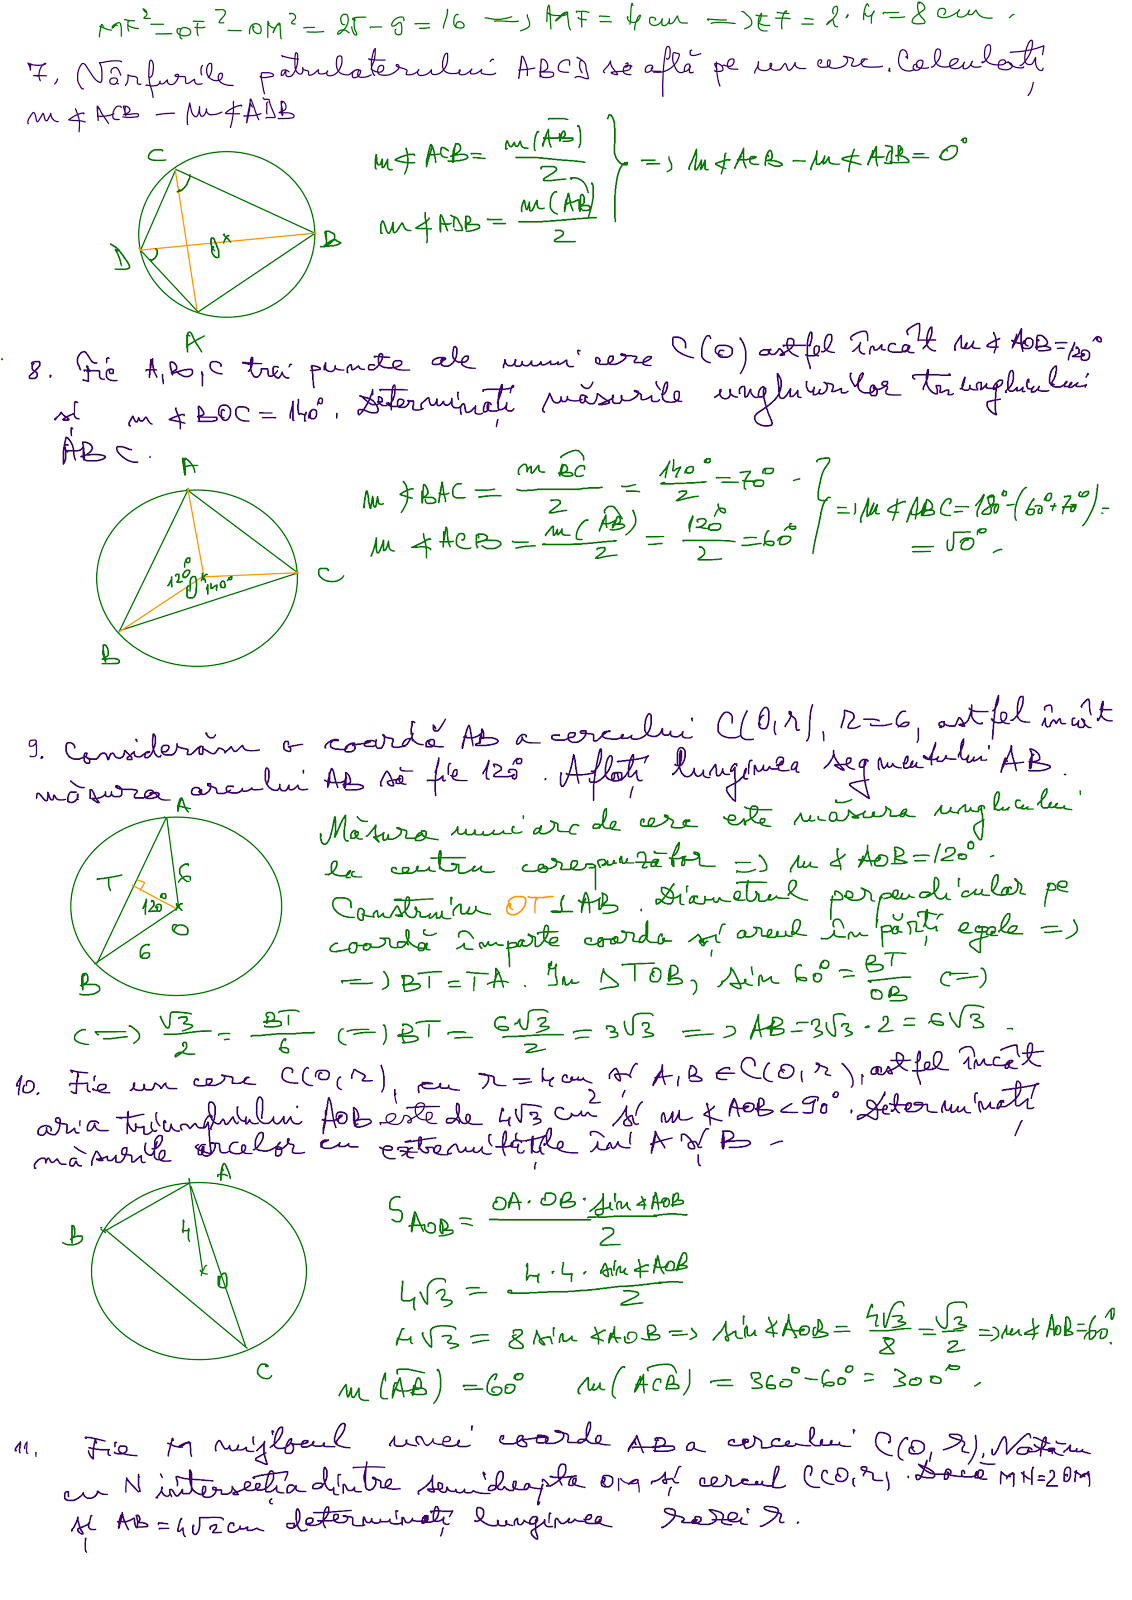 MF² = OF² - OM² = 25 - 9 = 16 => MF = 4 cm => EF = 2 · 4 = 8 cm.
7. Vârfurile patrulaterului ABCD se află pe un cerc. Calculați
m∢ACB - m∢ADB
m∢ACB = m(AB)/2
m∢ADB = m(AB)/2
=> m∢ACB - m∢ADB = 0°
C
D
O
B
A
8. Fie A, B, C trei puncte ale unui cerc C(O) astfel încât m∢AOB = 120°
și m∢BOC = 140°. Determinați măsurile unghiurilor triunghiului
ABC.
m∢BAC = m BC/2 = 140°/2 = 70°
m∢ACB = m(AB)/2 = 120°/2 = 60°
=> m∢ABC = 180° - (60° + 70°) =
= 50°.
A
120°
O
140°
C
B
9. Considerăm o coardă AB a cercului C(O, r), r = 6, astfel încât
măsura arcului AB să fie 120°. Aflați lungimea segmentului AB.
A
T
6
120°
O
6
B
Măsura unui arc de cerc este măsura unghiului
la centru corespunzător => m∢AOB = 120°.
Construim OT ⊥ AB. Diametrul perpendicular pe
coardă împarte coarda și arcul în părți egale =>
=> BT = TA. În △TOB, sin 60° = BT/OB <=>
<=> √3/2 = BT/6 <=> BT = 6√3/2 = 3√3 => AB = 3√3 · 2 = 6√3.
10. Fie un cerc C(O, r), cu r = 4 cm și A, B ∈ C(O, r), astfel încât
aria triunghiului AOB este de 4√3 cm² și m∢AOB < 90°. Determinați
măsurile arcelor cu extremitățile în A și B.
A
B
4
O
C
S AOB = OA · OB · sin∢AOB/2
4√3 = 4 · 4 · sin∢AOB/2
4√3 = 8 sin∢AOB => sin∢AOB = 4√3/8 = √3/2 => m∢AOB = 60°.
m(AB) = 60° m(ACB) = 360° - 60° = 300°.
11. Fie M mijlocul unei coarde AB a cercului C(O, r). Notăm
cu N intersecția dintre semidreapta OM și cercul C(O, r). Dacă MN = 2OM
și AB = 4√2 cm determinați lungimea razei r.